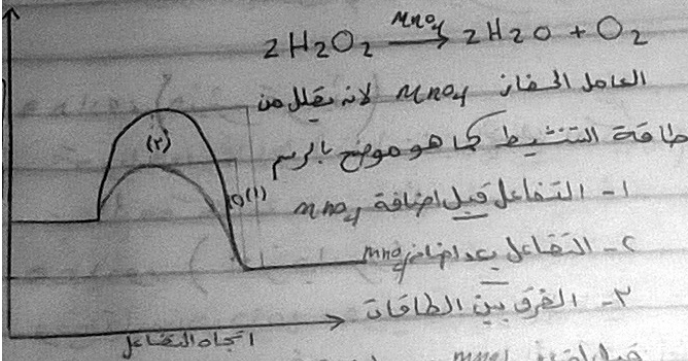 2H2O2 MnO4 → 2H2O + O2
العامل الحفاز MnO4 لانه يقلل من
طاقة التنشيط كما هو موضح بالرسم
١- التفاعل قبل اضافة MnO4
٢- التفاعل بعد اضافة MnO4
٣- الفرق بين الطاقات
(٣)
(١)
اتجاه التفاعل